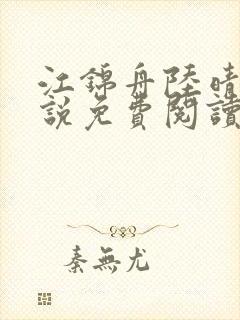 江錦舟陸晴
說免費閱讀
秦無尤